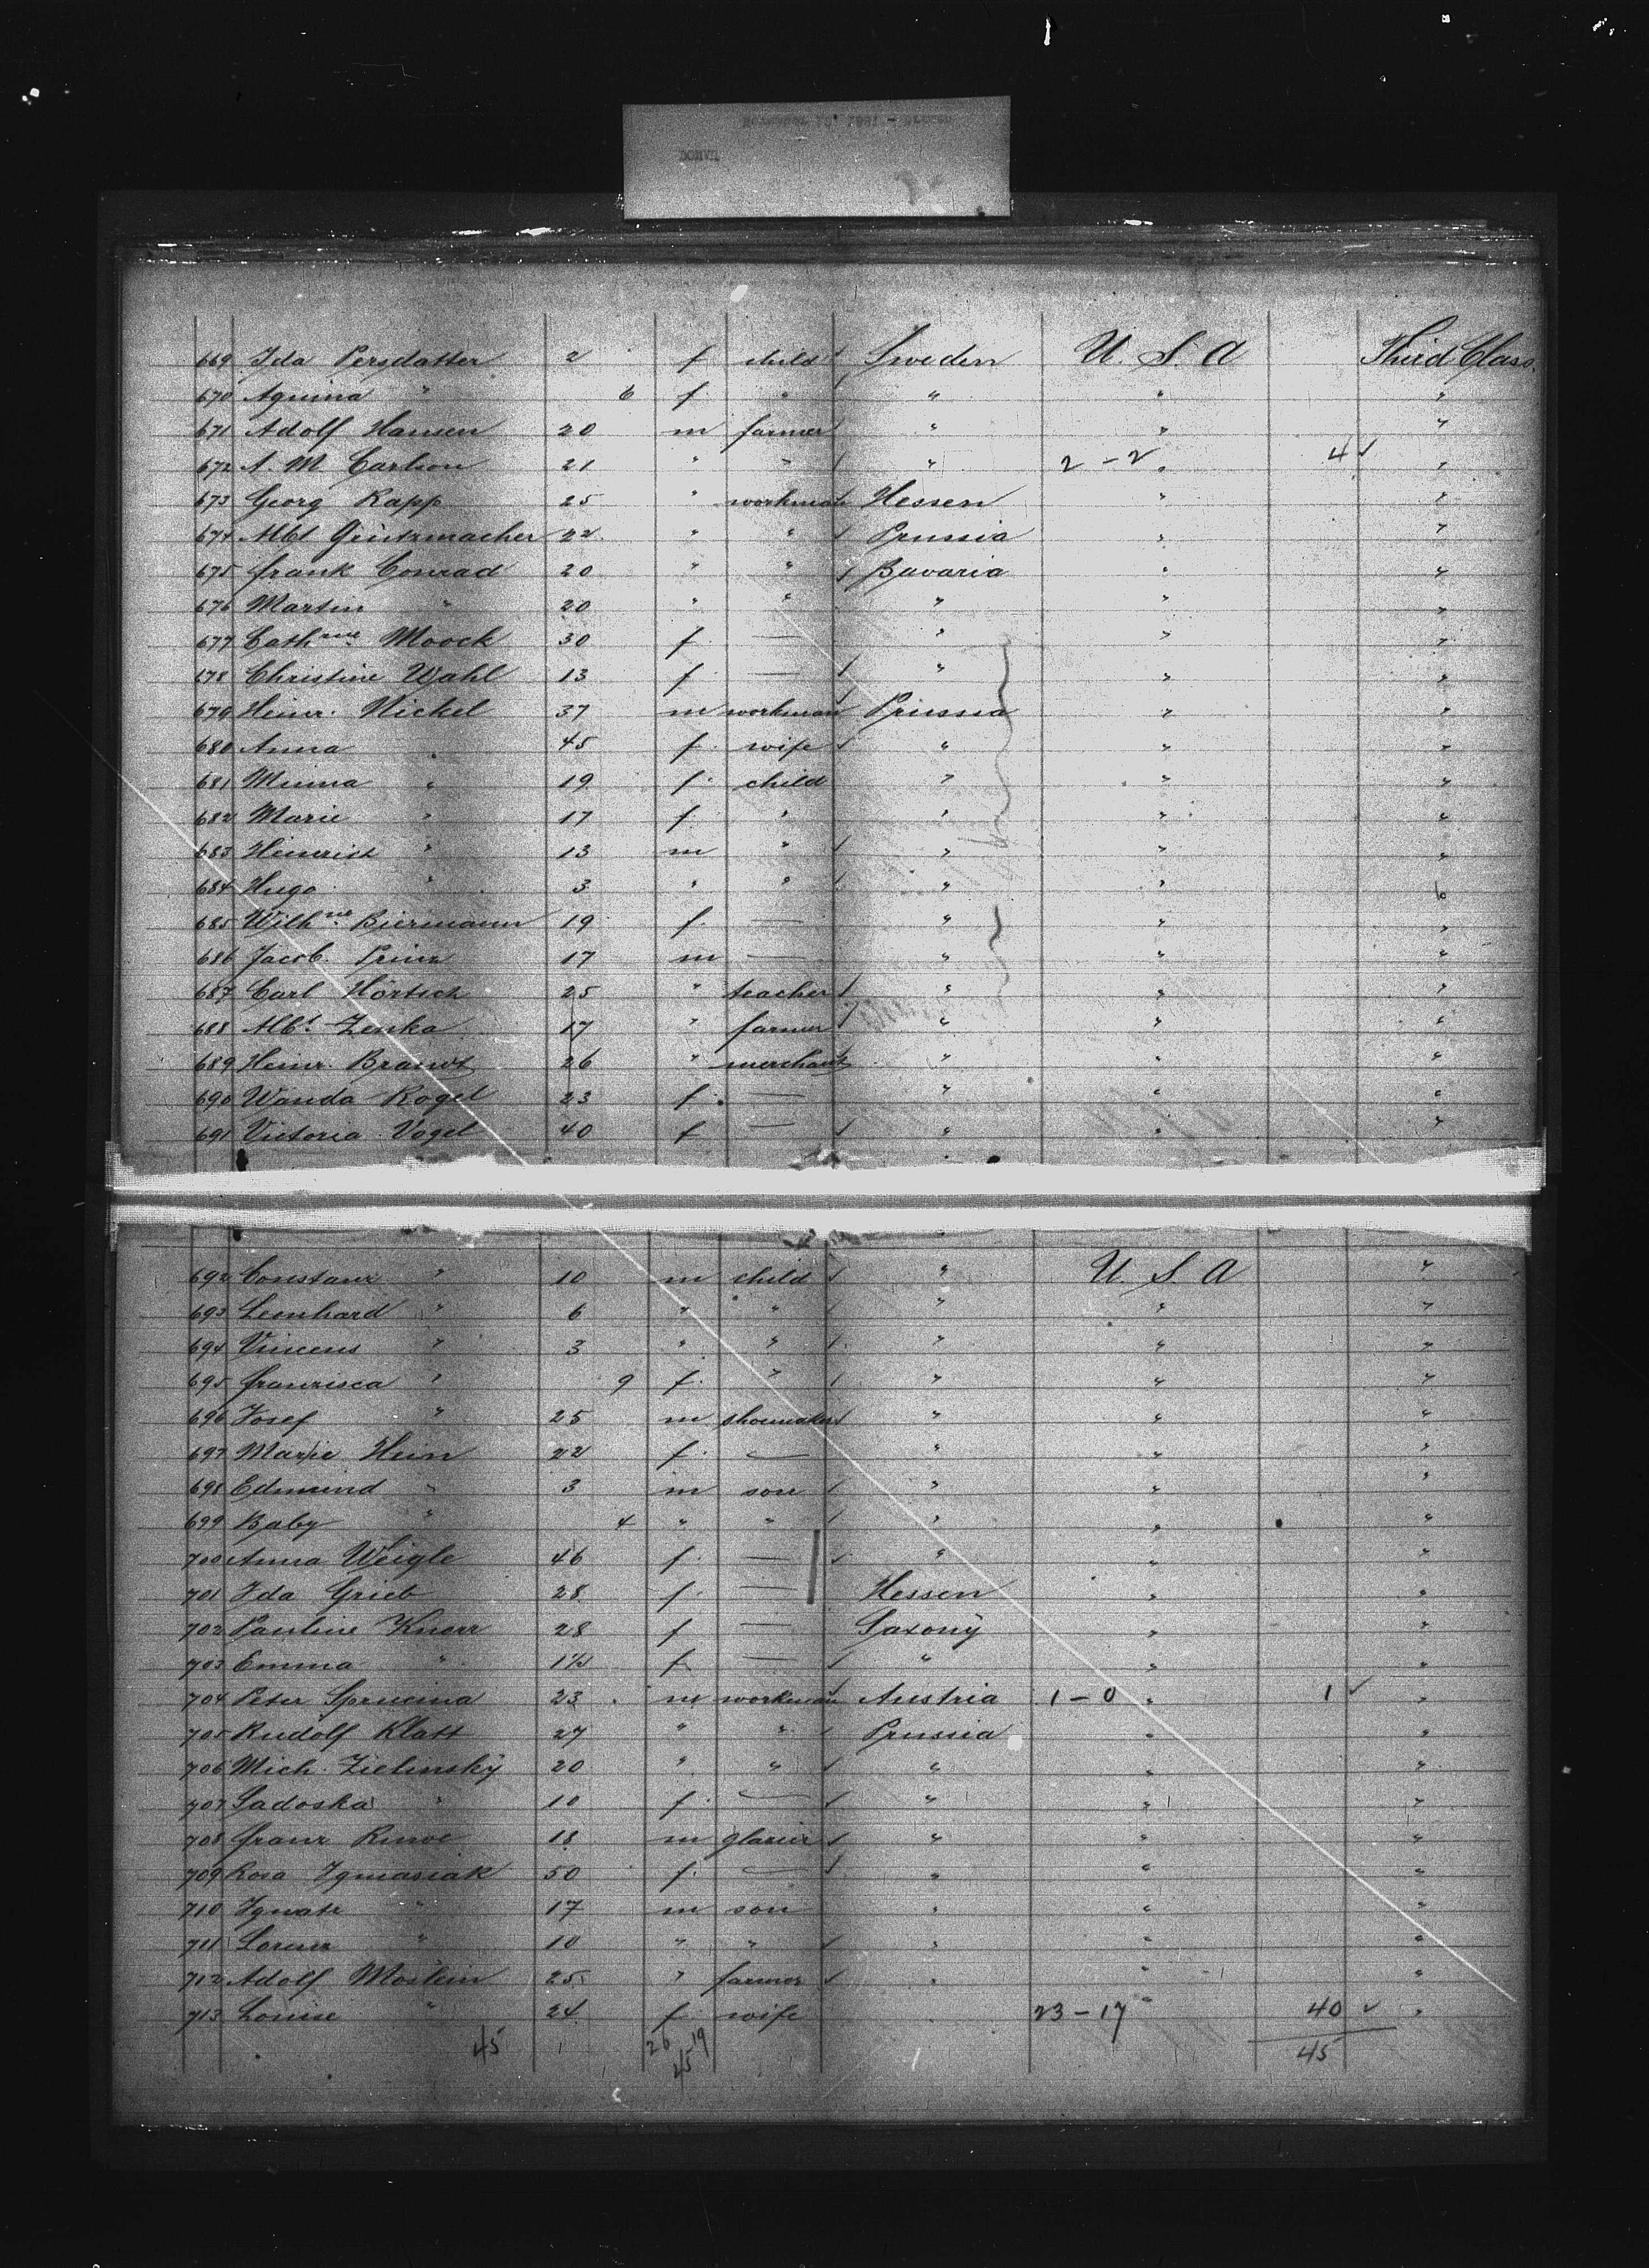 669 Ida Persdatter 2 f child Sweden U. S. A Third Class.
670 Aquina " 6 f. " " " "
671 Adolf Hansen 20 m farmer " " "
672 A. M. Carlson 21 " " " 2 - 2 " 4 ✓ "
673 Georg Rapp 25 " workman Hessen " "
674 Albt Grützmacher 22 " " Prussia " "
675 Frank Conrad 20 " " Bavaria " "
676 Martin " 20 " " " " "
677 Cathrine Moock 30 f. — " " "
678 Christine Wahl 13 f — " " "
679 Heinr. Nickel 37 m workman Prussia " "
680 Anna " 45 f. wife " " "
681 Minna " 19 f. child " " "
682 Marie " 17 f. " " " "
683 Heinrich " 13 m " " " "
684 Hugo " 3 " " " "
685 Wilhne Biermann 19 f. — " " "
686 Jacob Prinz 17 m — " " "
687 Carl Hörtsch 25 " teacher " " "
688 Albt Zenka 17 " farmer " " "
689 Heinr. Brandt 26 " merchant " " "
690 Wanda Rogel 23 f. — " " "
691 Victoria Vogel 40 f — " " "
692 " 10 m child " U. S. A "
693 Leonhard " 6 " " " " "
694 Vincens " 3 " " " " "
695 Franzisca " 9 f. " " " "
696 Josef " 25 m shoemaker " " "
697 Marie Hein 22 f. — " " "
698 Edmund " 3 m son " " "
699 Baby " 4 " " " " "
700 Anna Weigle 46 f. — " " "
701 Ida Grieb 28 f. — Hessen " "
702 Pauline Knorr 28 f — Saxony " "
703 Emma " 1½ f — " " "
704 Peter Sprucina 23 m workman Austria 1 - 0 " 1 ✓ "
705 Rudolf Klatt 27 " " Prussia " "
706 Mich. Zielinsky 20 " " " " "
707 Sadoska " 10 f. — " " "
708 Franz 18 m glazier " " "
709 Rosa Ignasiak 50 f. — " " "
710 Ignatz " 17 m son " " "
711 Lorenz " 10 " " " " "
712 Adolf Moslein 25 " farmer " " "
713 Louise " 24 f wife 23 - 17 " 40 ✓ "
45 26 19 45
45